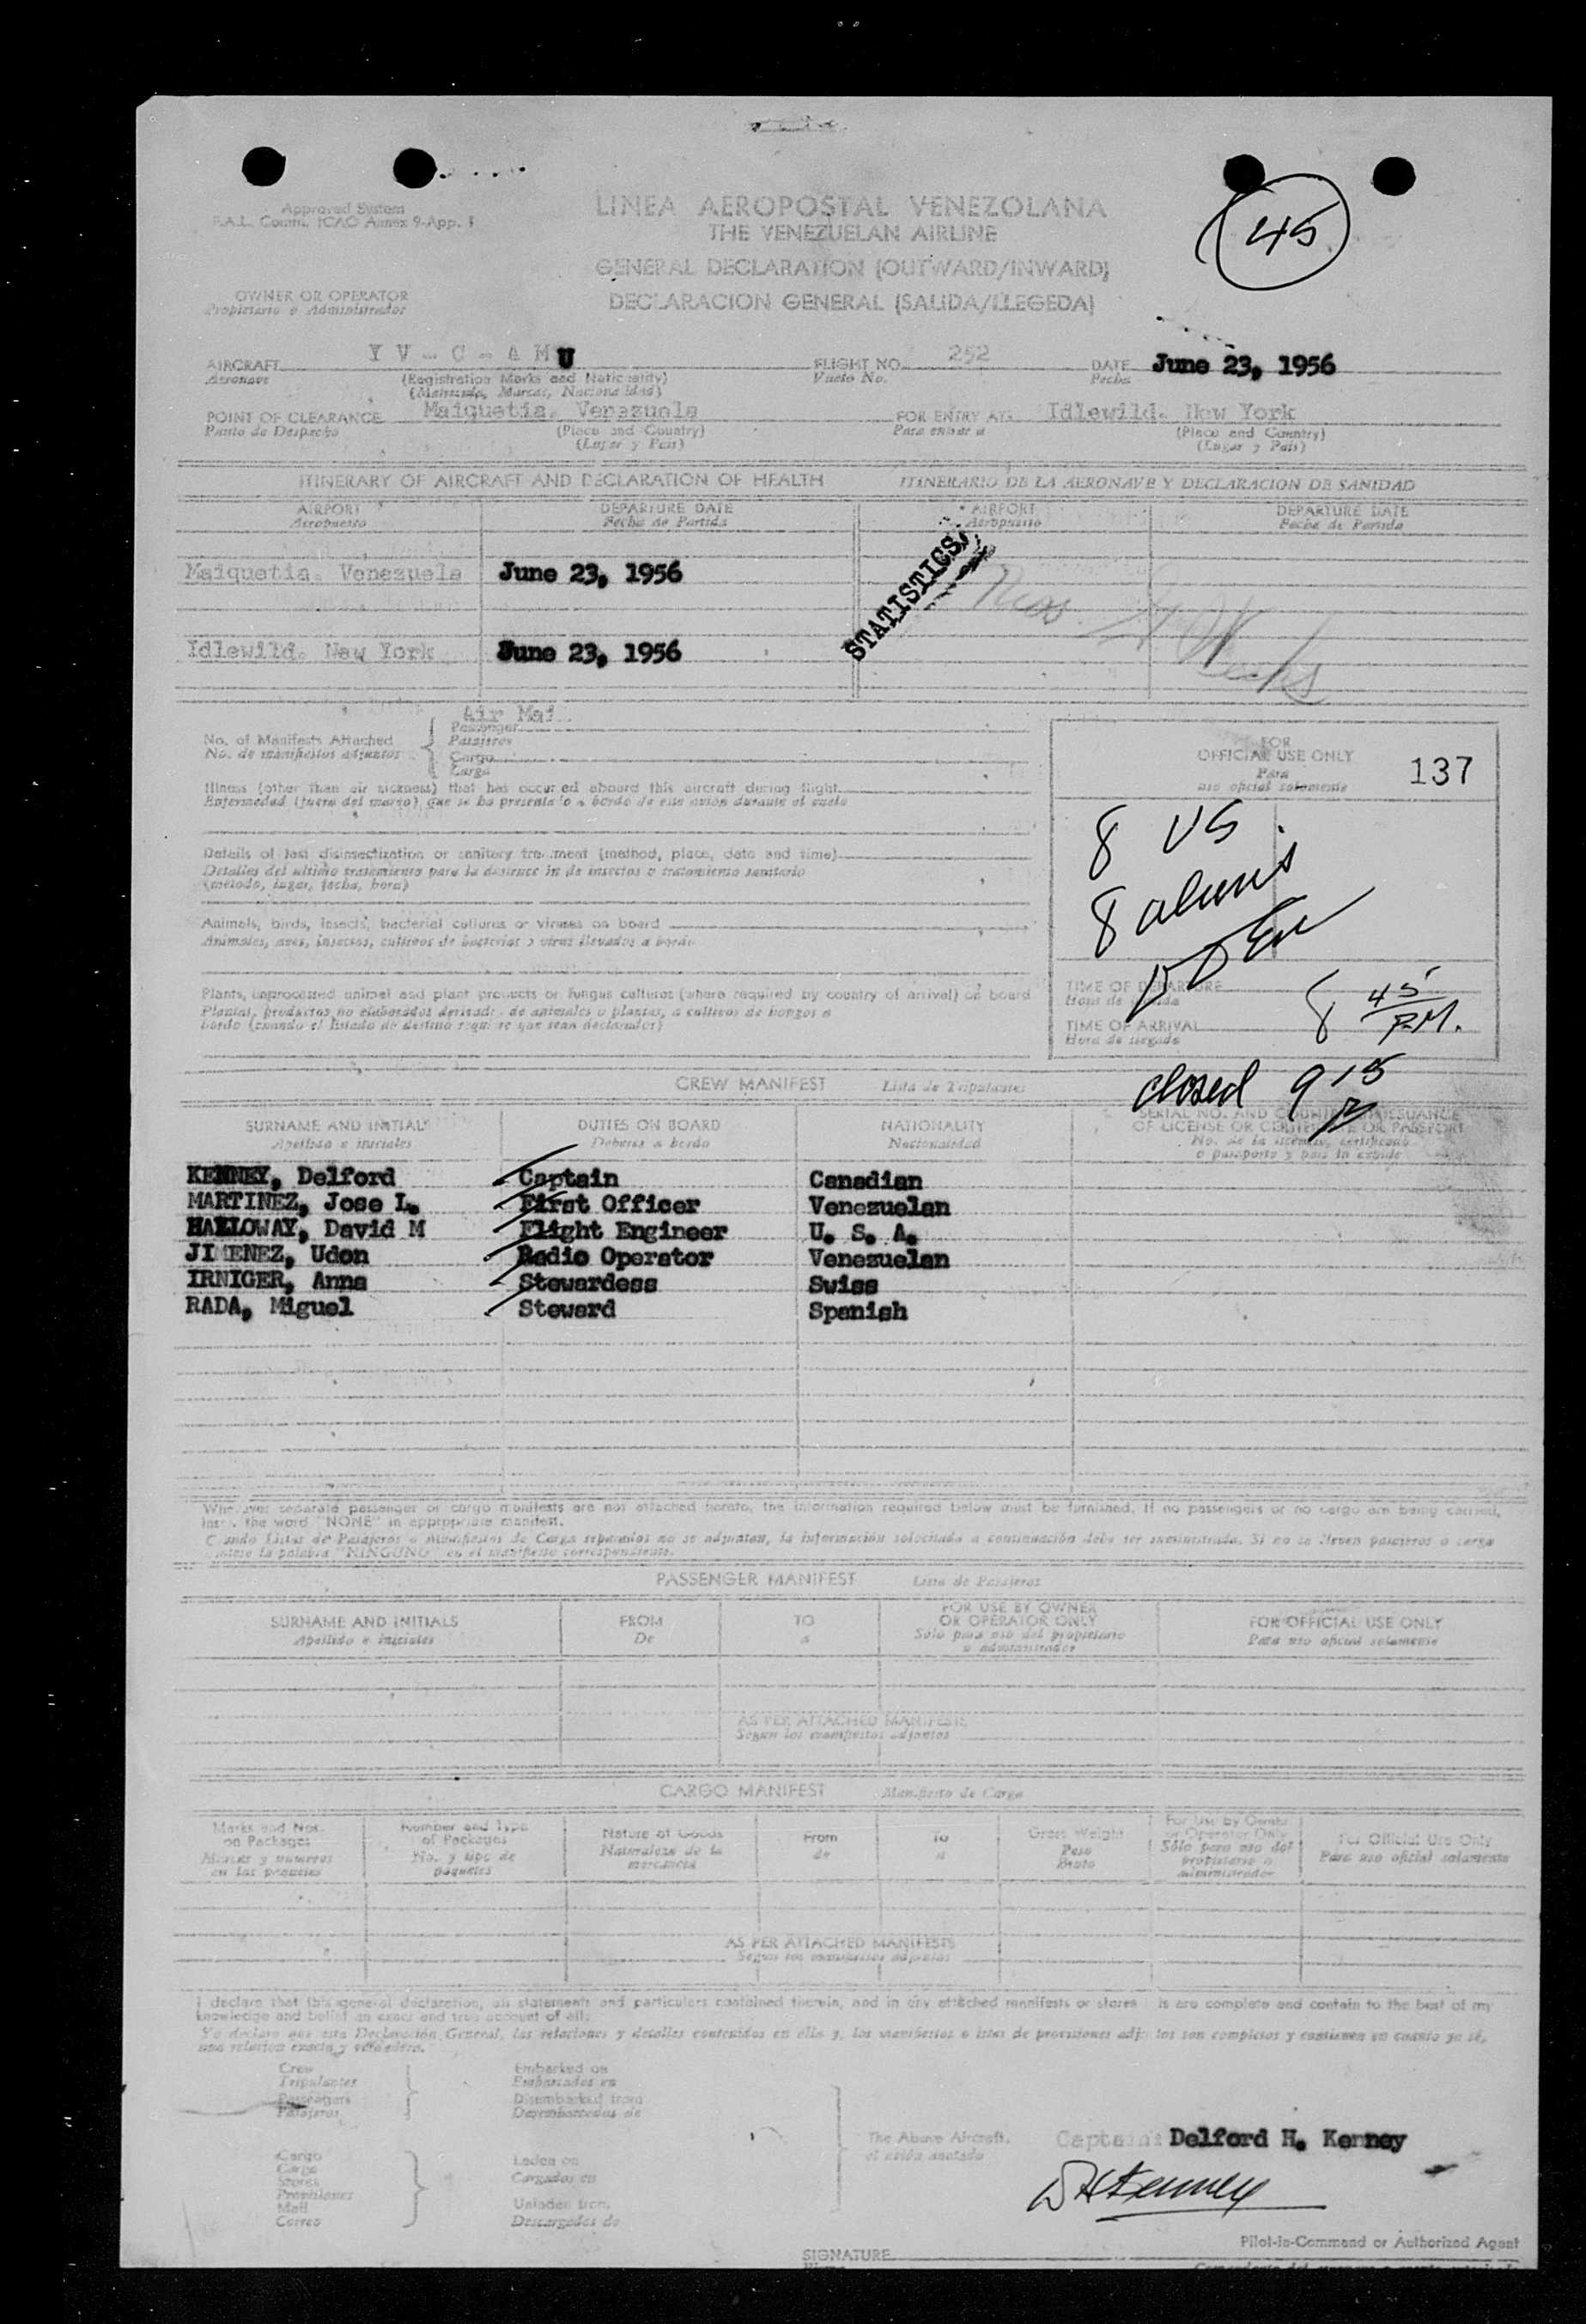 45
Approved System
F.A.L. Comm. ICAO Annex 9-App. 1
LINEA AEROPOSTAL VENEZOLANA
THE VENEZUELAN AIRLINE
GENERAL DECLARATION (OUTWARD/INWARD)
DECLARACION GENERAL (SALIDA/LLEGEDA)
OWNER OR OPERATOR
Propietario o Administrador
AIRCRAFT Y V - C - A M U FLIGHT NO. 252 DATE June 23, 1956
Aeronave (Registration Marks and Nationality) Vuelo No. Fecha
POINT OF CLEARANCE Maiquetia, Venezuela FOR ENTRY AT: Idlewild, New York
Punto de Despacho (Place and Country) Para entrar a (Place and Country)
(Lugar y Pais) (Lugar y Pais)
ITINERARY OF AIRCRAFT AND DECLARATION OF HEALTH ITINERARIO DE LA AERONAVE Y DECLARACION DE SANIDAD
AIRPORT DEPARTURE DATE AIRPORT DEPARTURE DATE
Aeropuerto Fecha de Partida Aeropuerto Fecha de Partida
Maiquetia, Venezuela June 23, 1956
STATISTICS
Idlewild, New York June 23, 1956
Air Mai
No. of Manifests Attached Passenger
No. de manifiestos adjuntos Pasajeros
Cargo
Carga
FOR
OFFICIAL USE ONLY 137
Para
uso oficial solamente
Illness (other than air sickness) that has occurred aboard this aircraft during flight
Enfermedad (fuera del mareo) que se ha presentado a bordo de este avión durante el vuelo
8 US
8 aliens
Details of last disinsectization or sanitary treatment (method, place, date and time)
(método, lugar, fecha, hora)
Animals, birds, insects, bacterial cultures or viruses on board
Animales, aves, insectos, cultivos de bacterias o virus llevados a bordo
Plants, unprocessed animal and plant products or fungus cultures (where required by country of arrival) on board
Plantas, productos no elaborados derivados de animales o plantas, o cultivos de hongos a
bordo (cuando el Estado de destino requiere que sean declarados)
TIME OF DEPARTURE
TIME OF ARRIVAL 8 45 P.M.
Hora de llegada
closed 9 15
CREW MANIFEST Lista de Tripulantes
SURNAME AND INITIALS DUTIES ON BOARD NATIONALITY SERIAL NO. AND COUNTRY OF ISSUANCE
OF LICENSE OR CERTIFICATE OR PASSPORT
Apellido e iniciales Deberes a bordo Nacionalidad No. de la licencia, certificado
o pasaporte y pais lo expide
KENNEY, Delford Captain Canadian
MARTINEZ, Jose L. First Officer Venezuelan
HALLOWAY, David M Flight Engineer U. S. A.
JIMENEZ, Udon Radio Operator Venezuelan
IRNIGER, Anna Stewardess Swiss
RADA, Miguel Steward Spanish
Whenever separate passenger or cargo manifests are not attached hereto, the information required below must be furnished. If no passengers or no cargo are being carried,
insert the word "NONE" in appropriate manifest.
Cuando Listas de Pasajeros o Manifiestos de Carga separados no se adjuntan, la información solocitada a continuación debe ser suministrada. Si no se lleven pasajeros o carga
la palabra "NINGUNO" en el manifiesto correspondiente.
PASSENGER MANIFEST Lista de Pasajeros
SURNAME AND INITIALS FROM TO FOR USE BY OWNER OR OPERATOR ONLY FOR OFFICIAL USE ONLY
Apellido e iniciales De a Solo para uso del propietario o administrador Para uso oficial solamente
AS PER ATTACHED MANIFESTS
Segun los manifiestos adjuntos
CARGO MANIFEST Manifiesto de Carga
Marks and Nos. on Packages Number and Type of Packages Nature of Goods From To Gross Weight For Use by Owner or Operator Only For Official Use Only
Marcas y números en los paquetes No. y tipo de paquetes Naturaleza de la mercancia de a Peso Bruto Sólo para uso del propietario o administrador Para uso oficial solamente
AS PER ATTACHED MANIFESTS
Segun los manifiestos adjuntos
I declare that this general declaration, all statements and particulars contained therein, and in any attached manifests or stores is are complete and contain to the best of my
knowledge and belief an exact and true account of all.
Yo declaro que esta Declaración General, las relaciones y detalles contenidos en ella y, los manifiestos o listas de provisiones adj los son completos y contienen en cuanto yo sé,
una relacion exacta y verdadera.
Crew Embarked on
Tripulantes Embarcados en
Passengers Disembarked from
Pasajeros Desembarcados de
The Above Aircraft.
el avión anotado
Captain: Delford H. Kenney
Cargo Laden on
Carga Cargados en
Stores
Provisiones
Mail Unladen from
Correo Descargados de
DHKenney
Pilot-in-Command or Authorized Agent
SIGNATURE